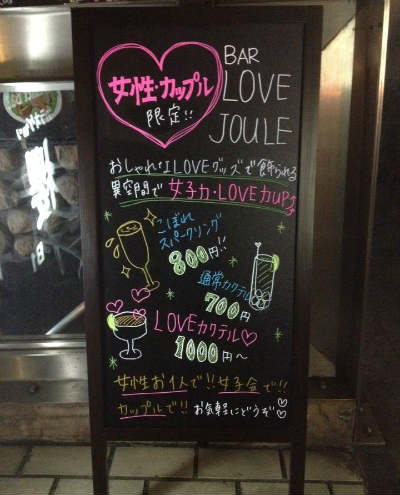 女性・カップル
限定!!
BAR
LOVE
JOULE
おしゃれなILOVEグッズで飾られる
異空間で女子力・LOVE力UP♪
こぼれ
スパークリング
800円!!
通常カクテル
700円
LOVEカクテル♡
1000円〜
女性お1人で!!女子会で!!
カップルで!!お気軽にどうぞ♡